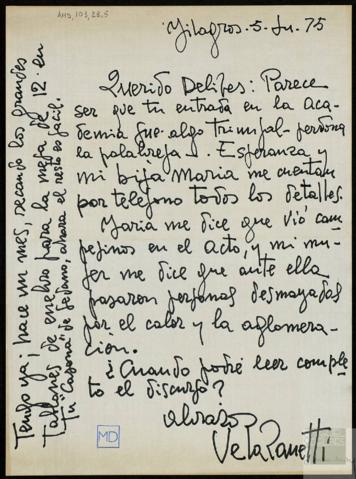 AMD, 103, 28.5
Milagros. 5. Ju. 75
Querido Delibes: Parece
ser que tu entrada en la aca
demia fue algo triunfal - perdona
la palabreja -. Esperanza y
mi hija Maria me cuentan
por telefono todos los detalles.
Maria me dice que vió cam
pesinos en el acto, y mi mu-
jer me dice que ante ella
pasaron personas desmayadas
por el calor y la aglomera-
cion.
¿Cuando podré leer comple
to el discurso?
abrazos
Vela Zanetti
MD
Tengo ya; hace un mes, secando los grandes
tablones de enebro para la mesa de 12. en
tu "Casona" de Sedano, ahora el resto es fácil.